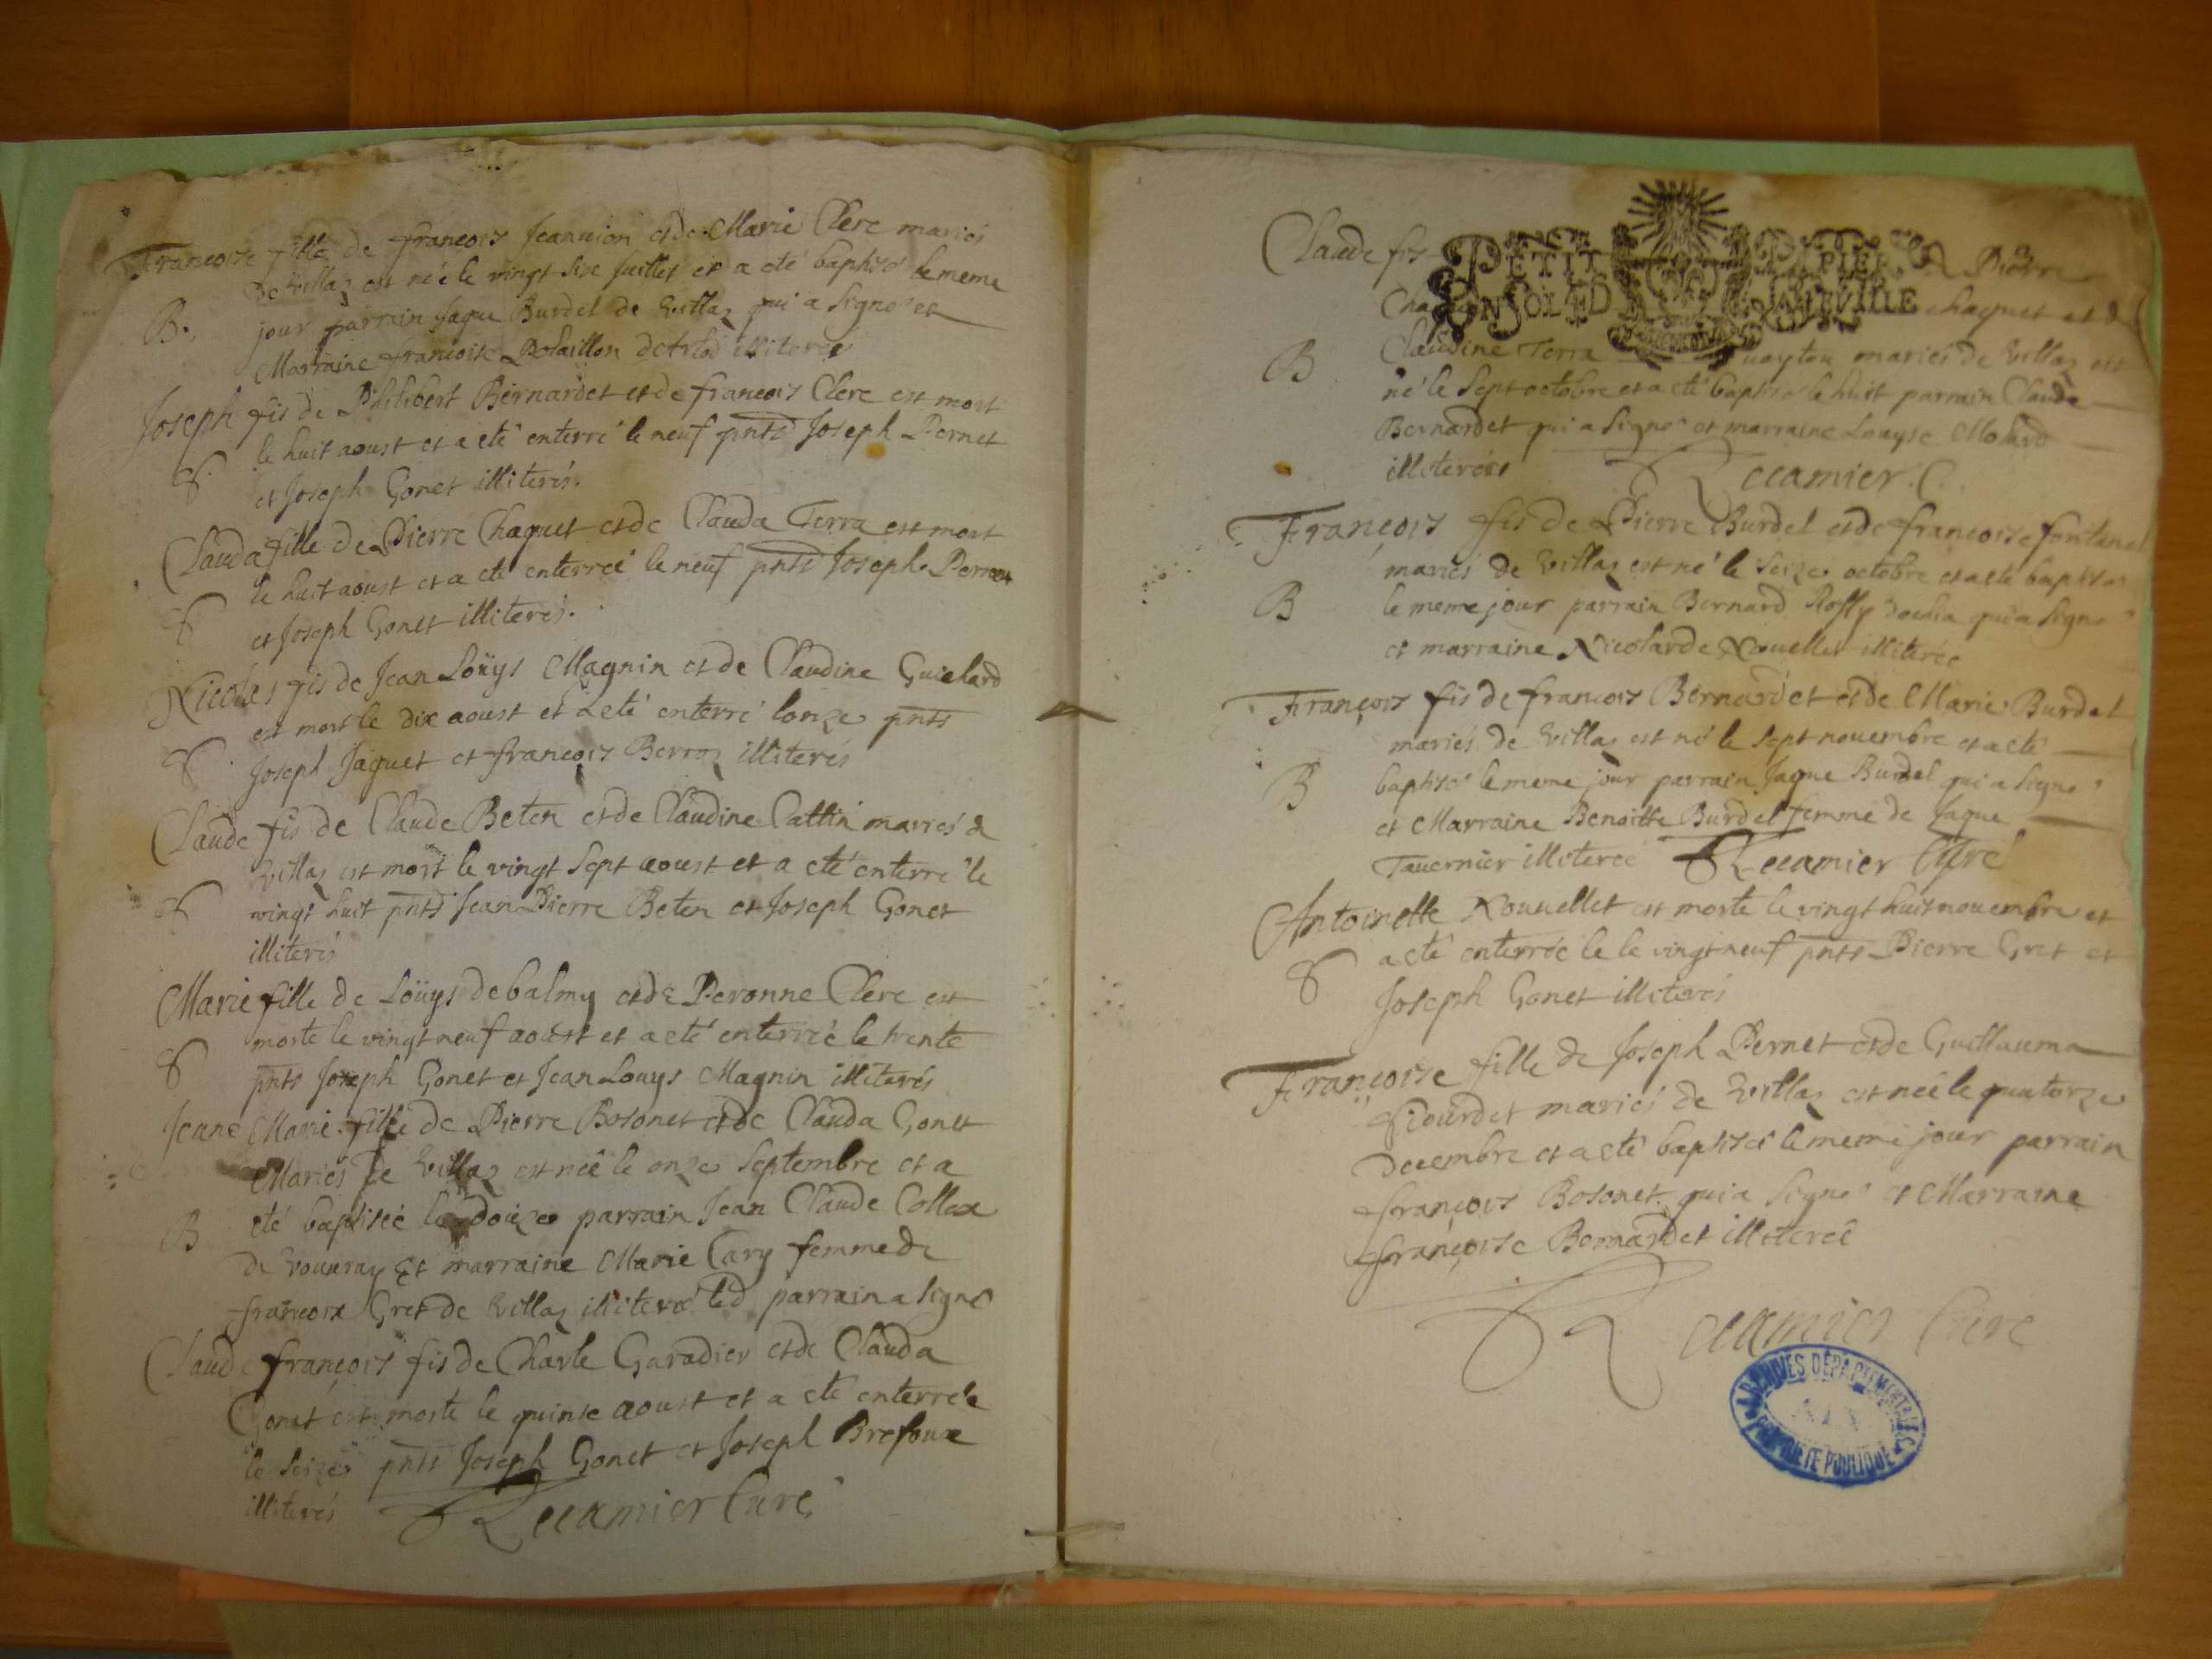 Francoise fille de francois Jeannion et de Marie Clerc mariés
de Villaz est née le vingt six Juillet et a eté baptisé le meme
B. jour parrain Jaque Burdel de Villaz qui a signé et
Marraine francoise illiterée
Joseph fis de Philibert Bernardet et de francois Clerc est mort
le huit aoust et a eté enterré le neuf pnts Joseph Pernet
S et Joseph Gonet illiterés.
Clauda fille de Pierre Chaquet et de Clauda Terra est mort
le huit aoust et a eté enterreé le neuf pnts Joseph Pernet
S et Joseph Gonet illiterés.
Nicolas fis de Jean Loüys Magnin et de Claudine Guichard
est mort le dix aoust et a eté enterré lonze pnts
S Joseph Jaquet et francois Berroz illiterés
Claude fis de Claude Beten et de Claudine Cattin mariés de
Villaz est mort le vingt sept aoust et a eté enterré le
S vingt huit pnts Jean Pierre Beten et Joseph Gonet
illiterés
Marie fille de Loüys debalmy et de Peronne Clerc est
morte le vingt neuf aoust et a eté enterreé le trente
S pnts Joseph Gonet et Jean Louys Magnin illiterés
Jeane Marie fille de Pierre Bosonet et de Clauda Gonet
Mariés de Villaz est neé le onze Septembre et a
B eté baptiseé le douze parrain Jean Claude Collex
de vouuray et marraine Marie Cary femme de
francois Gret de Villaz illiteré led parrain a signé
Claude françois fis de Charle Garadier et de Clauda
Gonet est morte le quinse aoust et a eté enterreé
le seize pnts Joseph Gonet et Joseph Brefoux
illiterés Recamier Curé
PETIT PAPIER
Claude fis Pierre
Cha chaquet et de
B Claudine Terra mariés de Villaz est
né le sept octobre et a eté baptisé le huit parrain Claude
Bernardet qui a signé et marraine Louyse Molard
illiterée Recamier C.
François fis de Pierre Burdel et de francoise fontanel
mariés de Villaz est né le seize octobre et a eté baptisé
B le meme jour parrain Bernard qui a signé
et marraine Nicolarde Nouellet illiterée
François fis de francois Bernardet et de Marie Burdel
mariés de Villaz est né le sept nouembre et a eté
B baptisé le meme jour parrain Jaque Burdel qui a signé
et Marraine Benoitte Burdel femme de Jaque
Tauernier illitereé Recamier Curé
Antoinette Nouuellet est morte le vingt huit nouembre et
a eté enterrée le le vingt neuf pnts Pierre Gret et
S Joseph Gonet illiterés
Françoise fille de Joseph Pernet et de Guillauma
mariés de Villaz est neé le quatorze
decembre et a eté baptiseé le meme jour parrain
françois Bosonet qui a signé et Marraine
françoise Bernardet illitereé
Recamier Curé
ARCHIVES DÉPARTEMENTALES
AIN
PROPRIÉTÉ PUBLIQUE